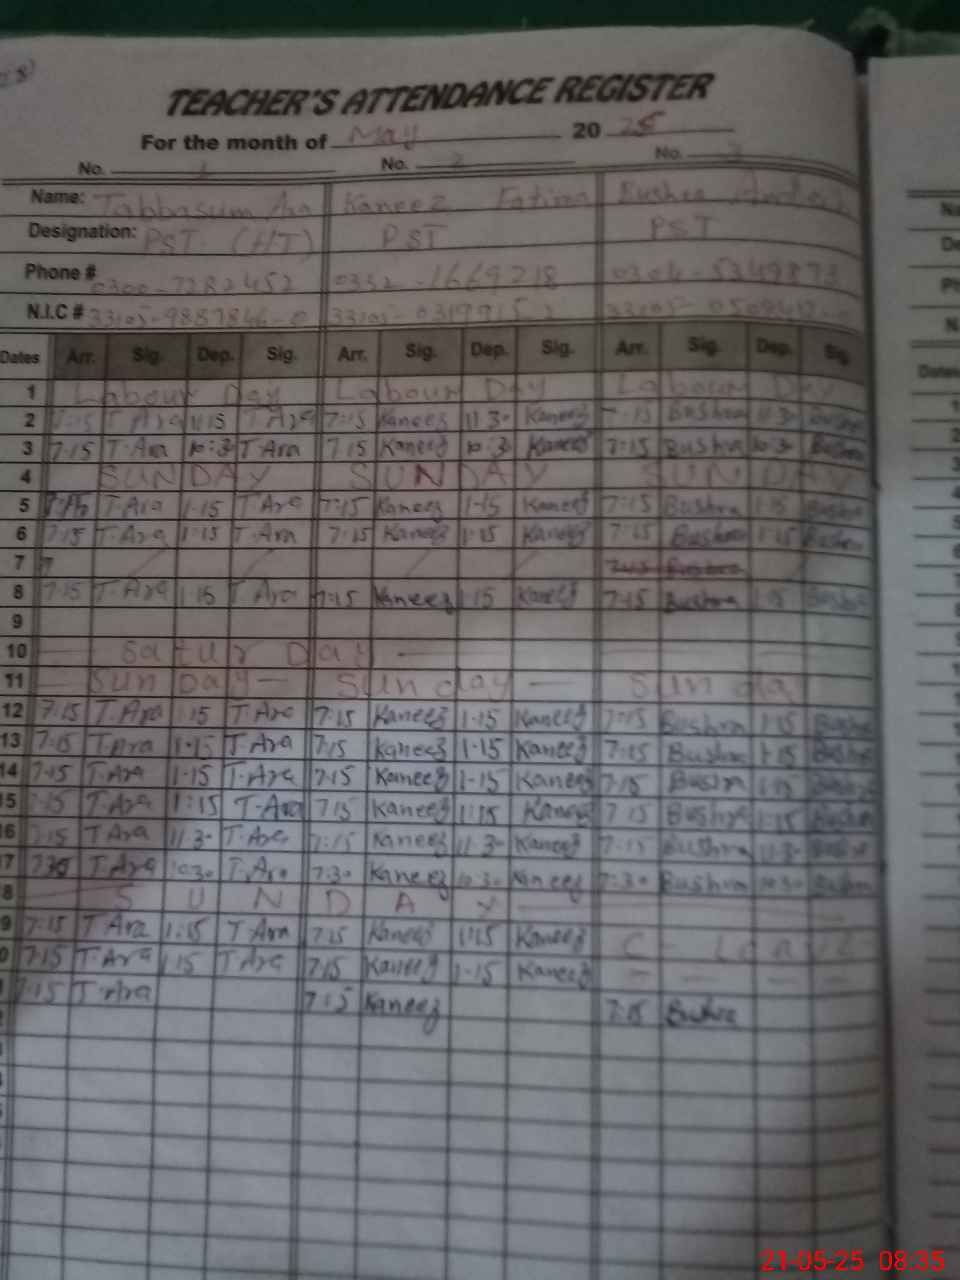 TEACHER'S ATTENDANCE REGISTER
For the month of May 20 25
No. 1 No. 2 No. 3
Name: Tabbasum Ara Kaneez Fatima Bushra
Designation: PST (HT) PST PST
Phone # 0300-7282452 0332-1669718 0304-5349873
N.I.C # 33105-9887846-0 33105- 33105-
Dates Arr. Sig. Dep. Sig. Arr. Sig. Dep. Sig. Arr. Sig. Dep. Sig.
1 Labour Day Labour Day Labour Day
2 7:15 T Ara 1:15 T Ara 7:15 Kaneez 11 30 Kaneez 7:15 Bushra 11 30 Bushra
3 7:15 T-Ara 10:30 T-Ara 7 15 Kaneez 10:30 Kaneez 7:15 Bushra 10 30 Bushra
4 SUNDAY SUNDAY SUNDAY
5 7:15 T.Ara 1-15 T.Ara 7:15 Kaneez 1-15 Kaneez 7:15 Bushra 1 15 Bushra
6 7:15 T.Ara 1:15 T.Ara 7:15 Kaneez 1:15 Kaneez 7:15 Bushra 1 15 Bushra
7 7 Bushra
8 7:15 T.Ara 1:15 T.Ara 7:15 Kaneez 1:15 Kaneez 7:15 Bushra 1:15 Bushra
9
10 Satur Day
11 Sun Day Sun day Sun day
12 7:15 T.Ara 1:15 T.Ara 7:15 Kaneez 1-15 Kaneez 7:15 Bushra 1:15 Bushra
13 7:15 T.Ara 1-15 T.Ara 7:15 Kaneez 1-15 Kaneez 7:15 Bushra 1-15 Bushra
14 7:15 T.Ara 1-15 T.Ara 7:15 Kaneez 1-15 Kaneez 7:15 Busra 1:15 Bushra
15 7:15 T.Ara 1:15 T-Ara 7:15 Kaneez 1:15 Kaneez 7:15 Bushra 1:15 Bushra
16 7:15 T.Ara 11.30 T.Ara 7:15 Kaneez 11.30 Kaneez 7:15 Bushra 11:30 Bushra
17 7:30 T.Ara 10:30 T.Ara 7:30 Kaneez 10:30 Kaneez 7:30 Bushra 10:30 Bushra
8 S U N D A Y
9 7:15 T Ara 1:15 T Ara 7:15 Kaneez 1:15 Kaneez C - Leave
0 7:15 T.Ara 1:15 T.Ara 7:15 Kaneez 1-15 Kaneez - - - -
7:15 T.Ara 7:15 Kaneez 7:15 Bushra
21-05-25 08:35